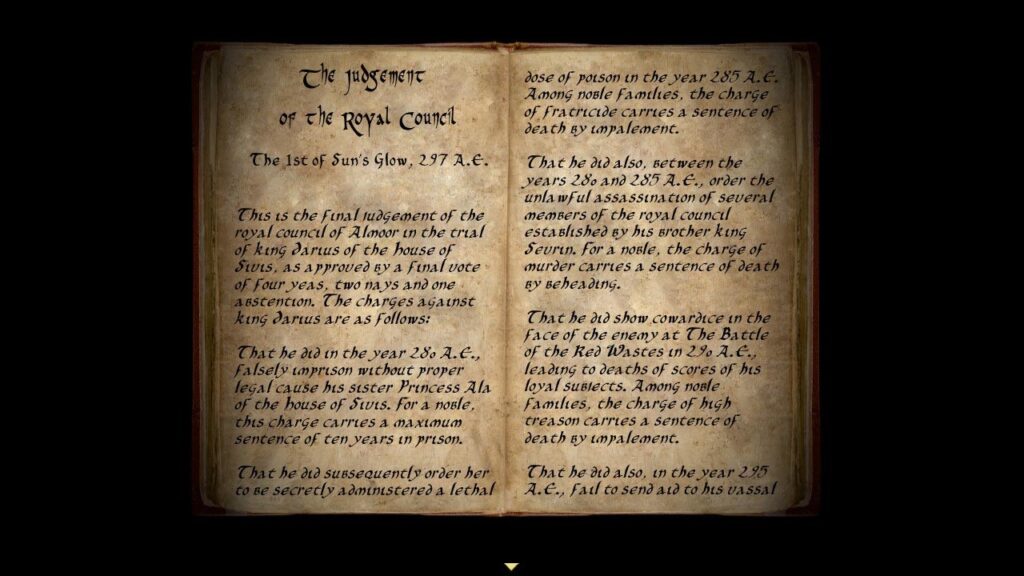 The Judgement
of the Royal Council
The 1st of Sun's Glow, 297 A.E.
This is the final judgement of the
royal council of Almoor in the trial
of king Darius of the House of
Sivis, as approved by a final vote
of four yeas, two nays and one
abstention. The charges against
king Darius are as follows:
That he did in the year 280 A.E.,
falsely imprison without proper
legal cause his sister Princess Ala
of the House of Sivis. For a noble,
this charge carries a maximum
sentence of ten years in prison.
That he did subsequently order her
to be secretly administered a lethal
dose of poison in the year 285 A.E.
Among noble families, the charge
of fratricide carries a sentence of
death by impalement.
That he did also, between the
years 280 and 285 A.E., order the
unlawful assassination of several
members of the royal council
established by his brother king
Sevrin. For a noble, the charge of
murder carries a sentence of death
by beheading.
That he did show cowardice in the
face of the enemy at The Battle
of the Red Wastes in 290 A.E.,
leading to deaths of scores of his
loyal subjects. Among noble
families, the charge of high
treason carries a sentence of
death by impalement.
That he did also, in the year 295
A.E., fail to send aid to his vassal